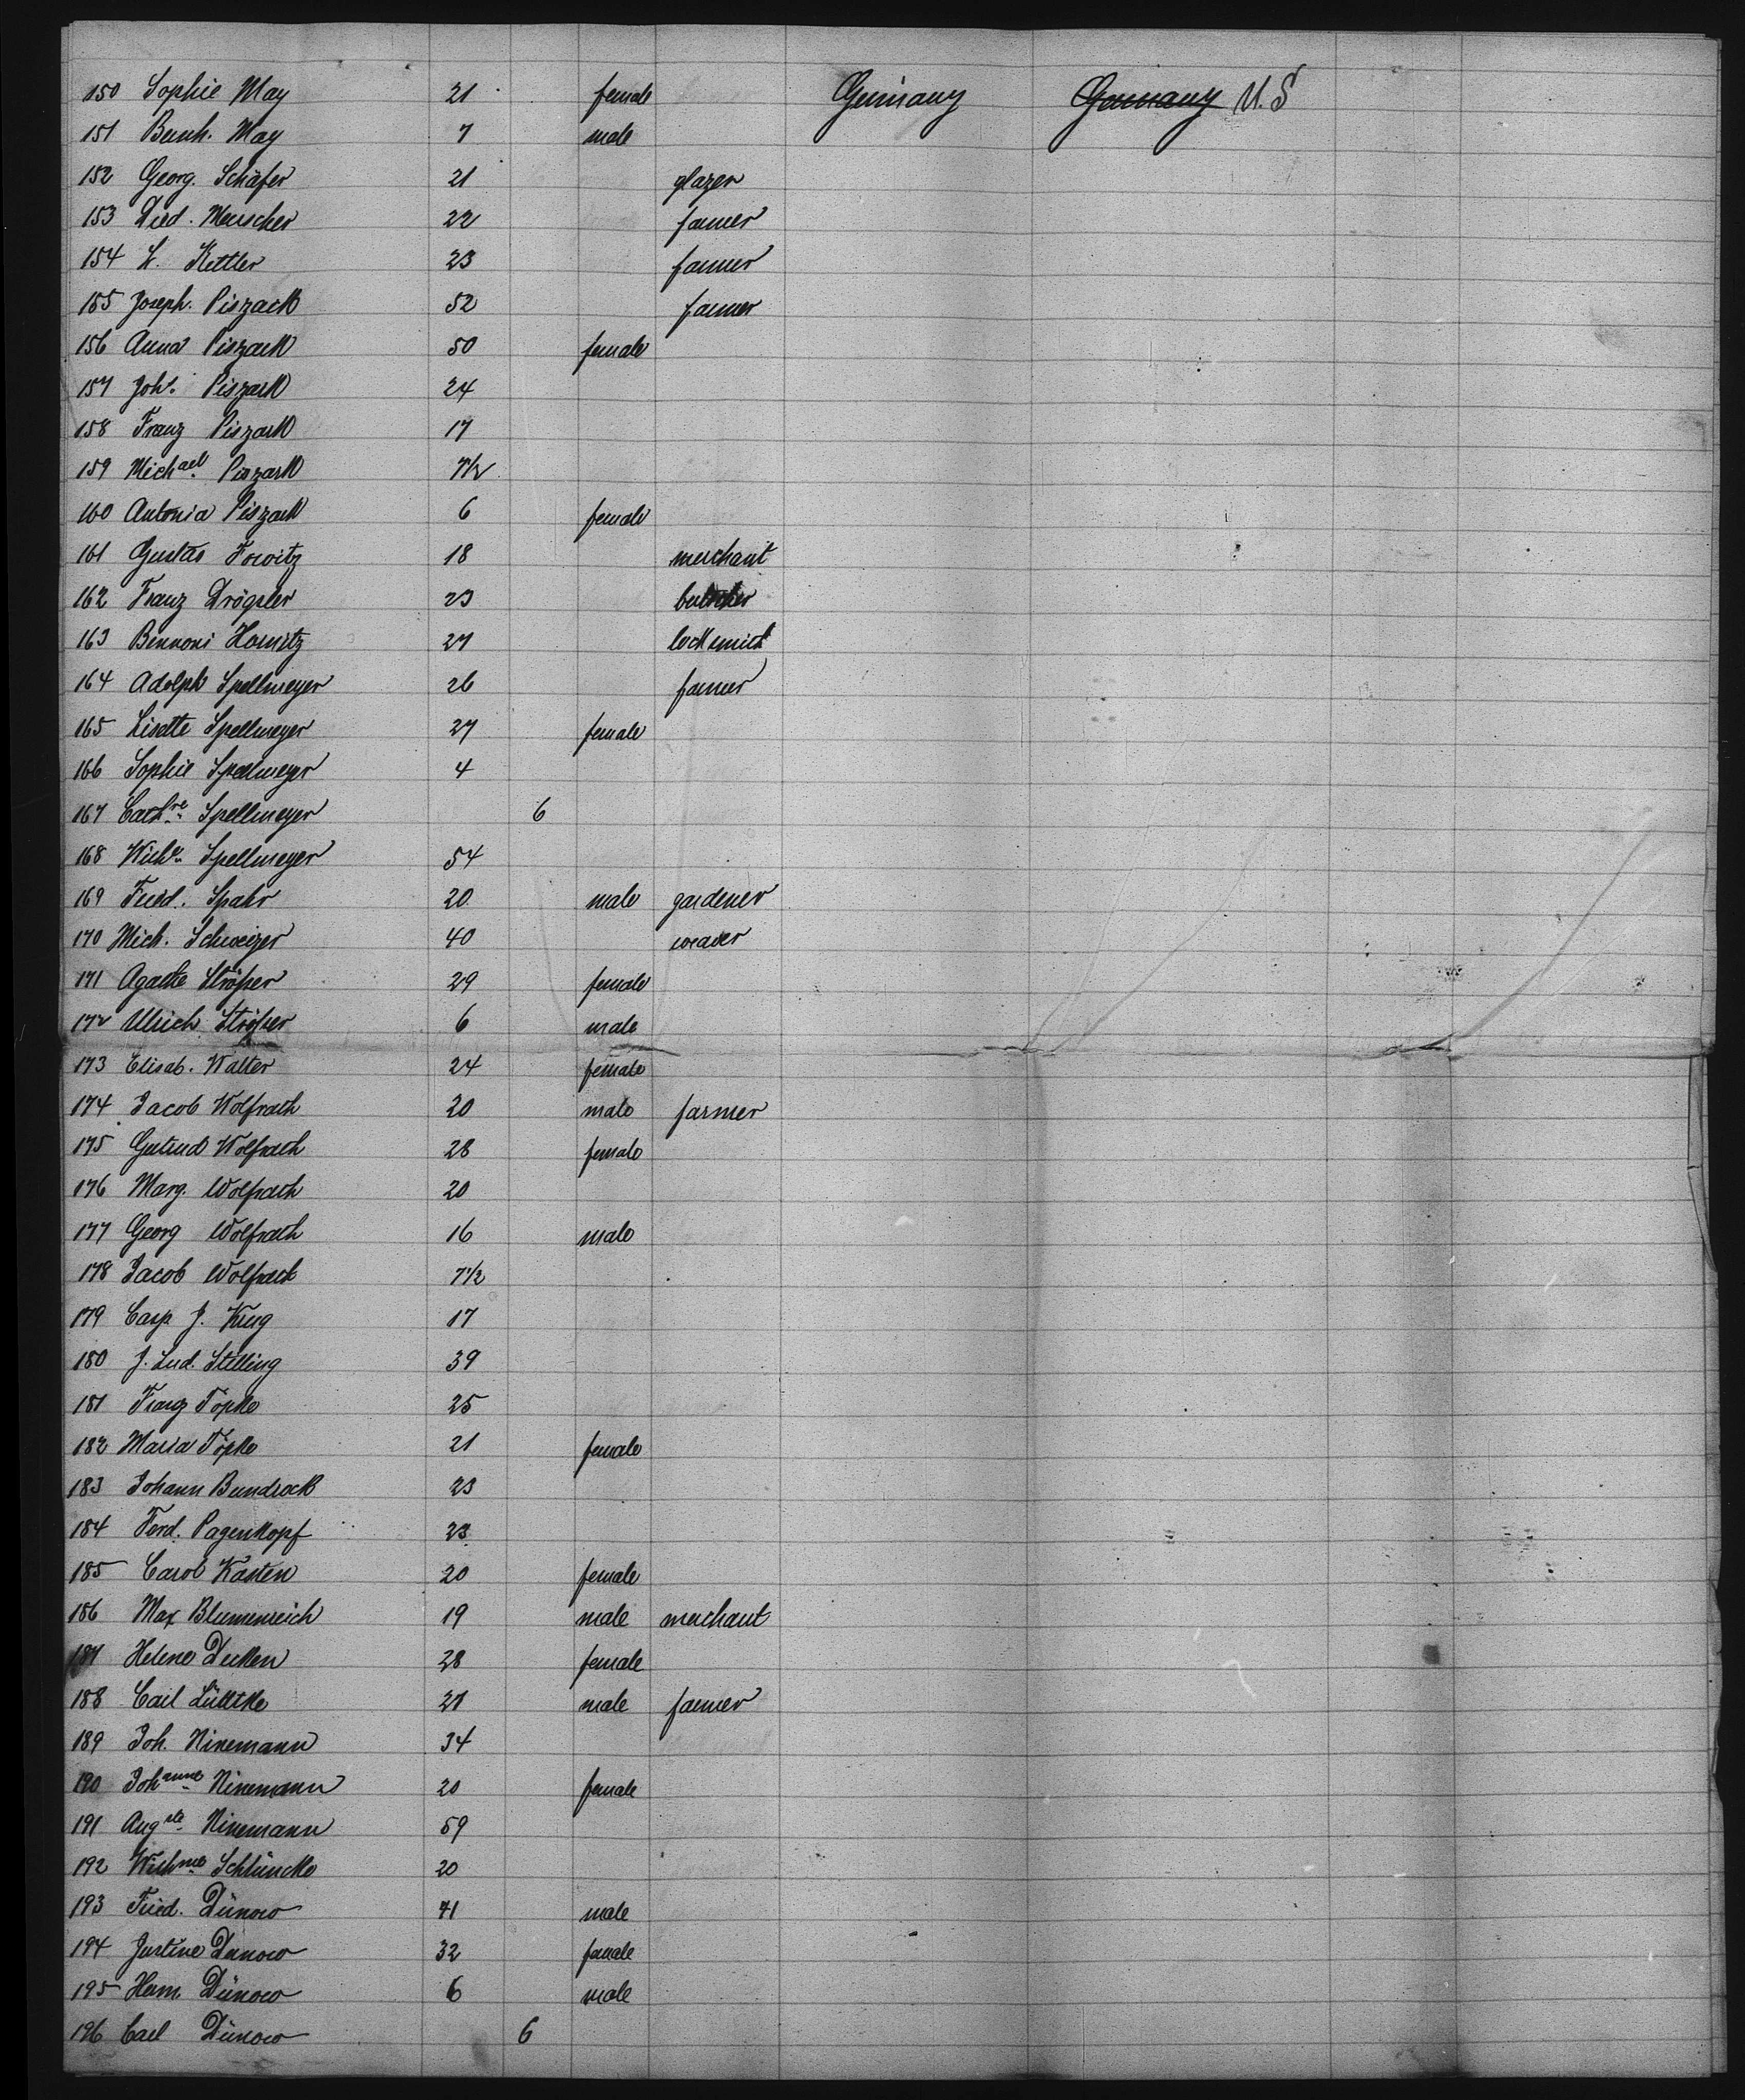 150 Sophie May 21 female Germany ~~Germany~~ U.S
151 Bernh. May 7 male
152 Georg. Schäfer 21 glazer
153 Died. Menscher 22 farmer
154 H. Kettler 23 farmer
155 Joseph. Piszack 52 farmer
156 Anna Piszack 50 female
157 Joh. Piszack 24
158 Franz Piszack 17
159 Michael Piszack 7½
160 Antonia Piszack 6 female
161 Gustav 18 merchant
162 Franz 23 butcher
163 Bennoni Horwitz 27 locksmith
164 Adolph Spellmeyer 26 farmer
165 Lisette Spellmeyer 27 female
166 Sophie Spellmeyer 4
167 Cathre Spellmeyer 6
168 Spellmeyer 54
169 Fried. Spahr 20 male gardener
170 Mich. Schweizer 40 weaver
171 Agathe Ströfser 29 female
172 Ulrich Ströfser 6 male
173 Elisab. Walter 24 female
174 Jacob Wolfrath 20 male farmer
175 Gertrud Wolfrath 28 female
176 Marg. Wolfrath 20
177 Georg Wolfrath 16 male
178 Jacob Wolfrath 7½
179 Casp J. King 17
180 J. Lud. Stelling 39
181 Franz Töpke 25
182 Maria Töpke 21 female
183 Johann Bundrock 23
184 Ferd. Pagenkopf 23
185 Carol Kasten 20 female
186 Max Blumenreich 19 male merchant
187 Helene Decken 28 female
188 Carl 27 male farmer
189 Joh. Ninemann 34
190 Johanne Ninemann 20 female
191 Augste Ninemann 59
192 Schlüncke 20
193 Fried. Dünow 41 male
194 Justine Dünow 32 female
195 Herm. Dünow 6 male
196 Carl Dünow 6